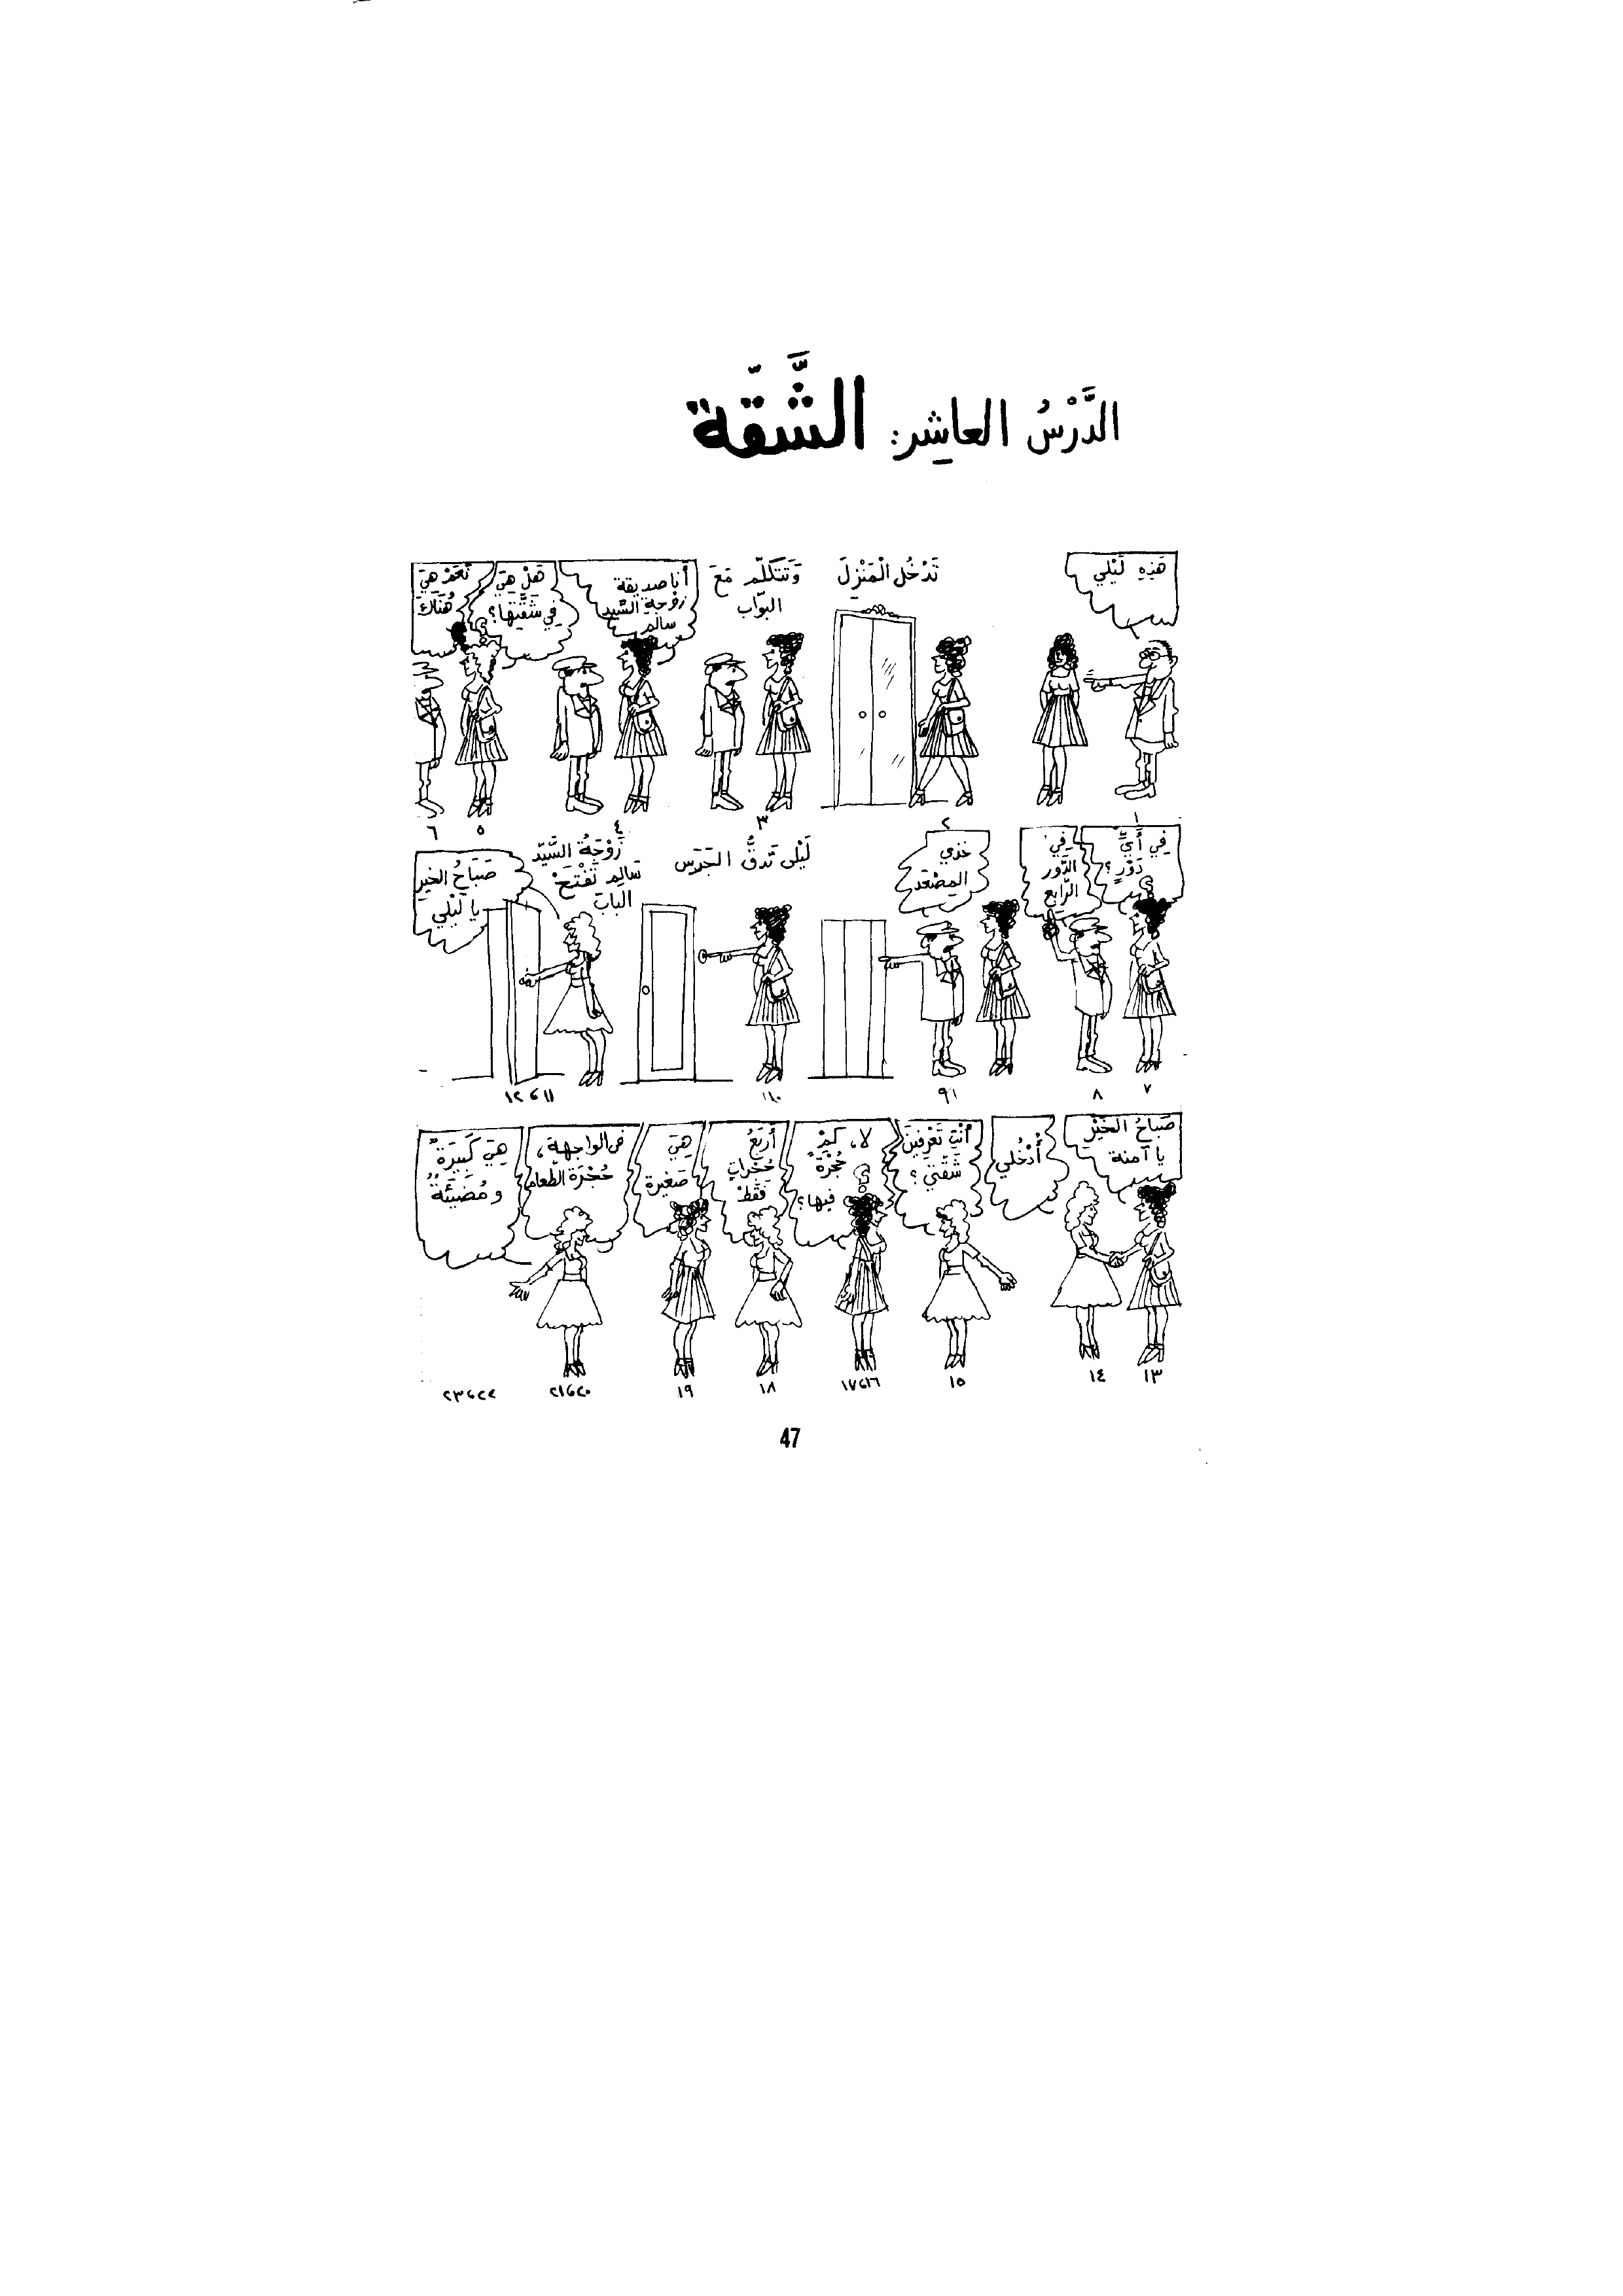 الدَّرْسُ العاشِر: الشَّقّة
هَذِهِ لَيْلي
تَدْخُل الْمَنْزِلَ
وَتَتَكَلَّم مَعَ
البَوّاب
أنا صديقة
زَوْجَةِ السَّيِّد
سالم
هَلْ هِيَ
فِي شَقَّتِها؟
نَعَمْ هِيَ
هُنَاكَ
١
٢
٣
٤
٥
٦
فِي أَيِّ
دَوْرٍ؟
فِي
الدَّوْر
الرَّابِع
خذي
المِصْعَد
لَيْلى تَدقُّ الجَرَس
زَوْجَةُ السَّيِّد
سَالِم تَفْتَحْ
البابَ
صَبَاحُ الخير
يا لَيْلي
٧
٨
٩
١٠
١١، ١٢
صَبَاحُ الخَيْرِ
يا آمنة
أُدْخُلي
أنْتِ تَعْرِفِينَ
شَقَّتِي؟
لا، كَمْ
حُجْرَةً
فيها؟
أَرْبَعُ
حُجُراتٍ
فَقَطْ
هِيَ
صَغيرة
في الواجهة،
حُجْرَة الطَّعام
هِيَ كَبيرَةٌ
و مُضيئَةٌ
١٣
١٤
١٥
١٦، ١٧
١٨
١٩
٢٠، ٢١
٢٢، ٢٣
47